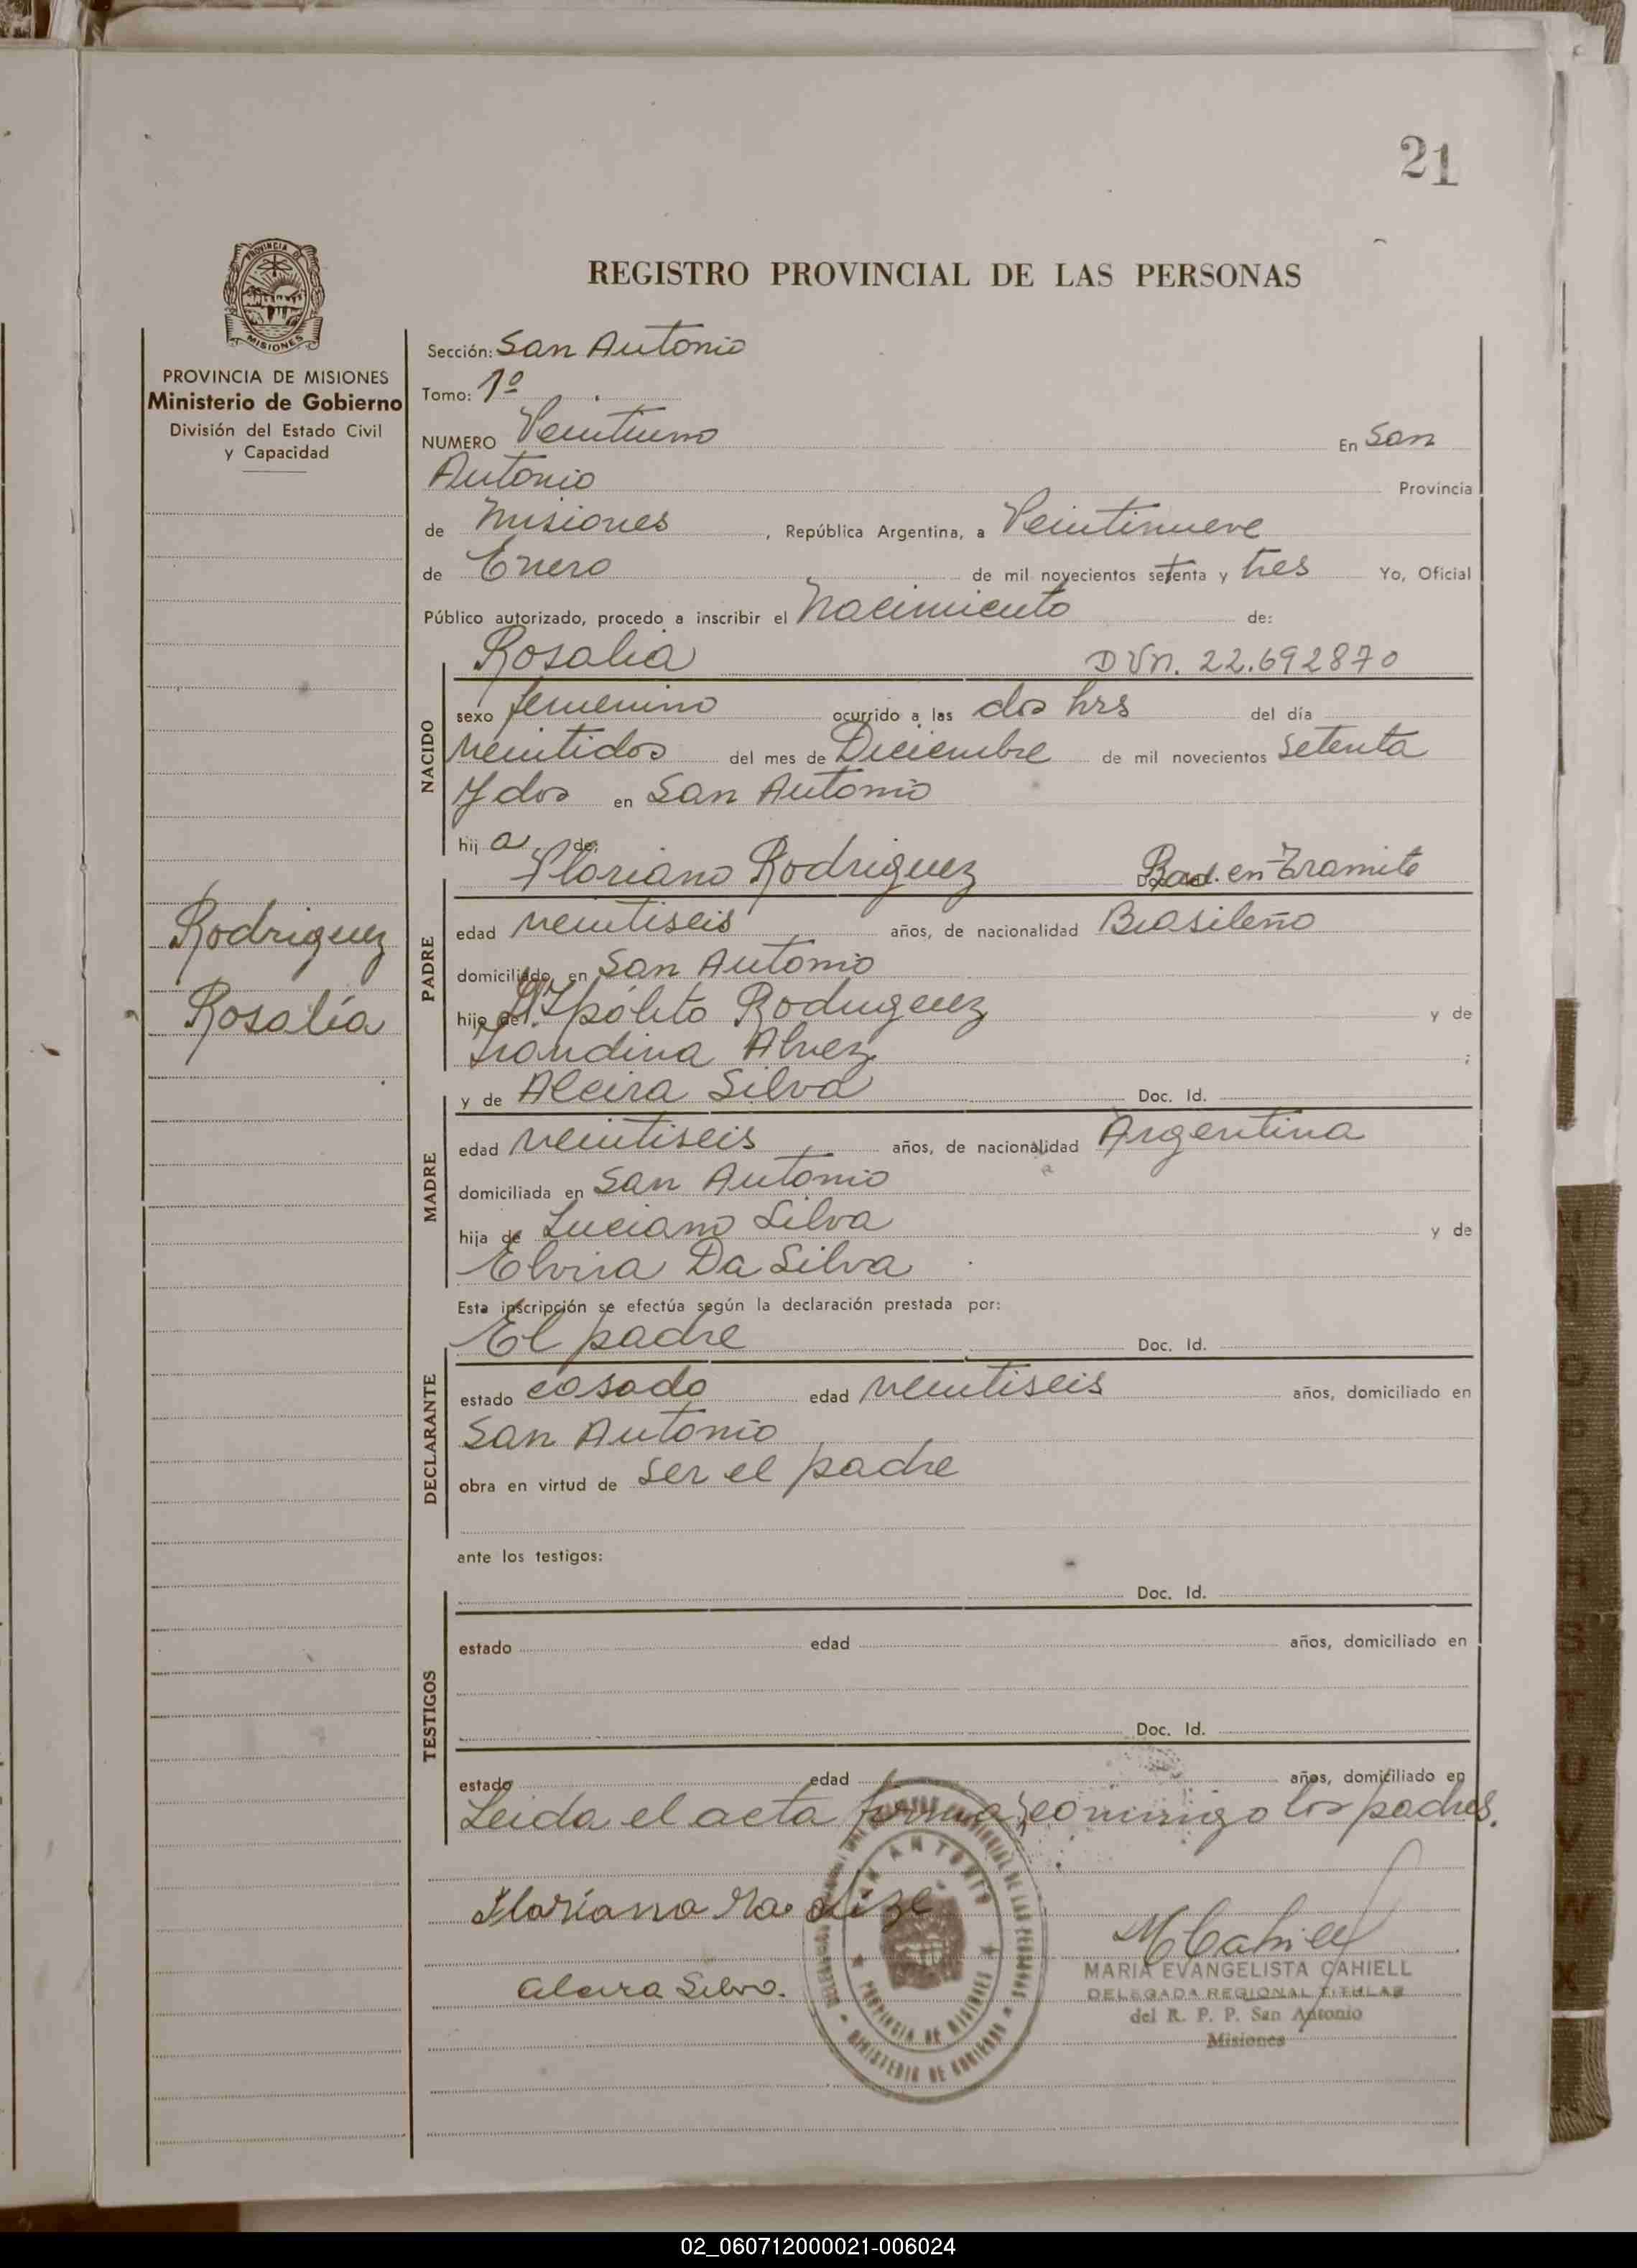 21
PROVINCIA DE
MISIONES
REGISTRO PROVINCIAL DE LAS PERSONAS
PROVINCIA DE MISIONES
Ministerio de Gobierno
División del Estado Civil
y Capacidad
Rodriguez
Rosalía
Sección: San Antonio
Tomo: 1º
NUMERO Veintiuno En San
Antonio Provincia
de Misiones, República Argentina, a Veintinueve
de Enero de mil novecientos setenta y tres Yo, Oficial
Público autorizado, procedo a inscribir el Nacimiento de:
Rosalia DVN. 22.692870
NACIDO
sexo femenino ocurrido a las dos hrs del día
veintidos del mes de Diciembre de mil novecientos setenta
y dos en San Antonio
hij a de:
Floriano Rodriguez en Tramite
PADRE
edad veintiseis años, de nacionalidad Brasileño
domiciliado en San Antonio
hijo de Ipólito Rodriguez y de
Alvez ;
MADRE
y de Alcira Silva Doc. Id.
edad veintiseis años, de nacionalidad Argentina
domiciliada en San Antonio
hija de Luciano Silva y de
Elvira Da Silva
Esta inscripción se efectúa según la declaración prestada por:
El padre Doc. Id.
DECLARANTE
estado casado edad veintiseis años, domiciliado en
San Antonio
obra en virtud de ser el padre
ante los testigos:
Doc. Id.
TESTIGOS
estado edad años, domiciliado en
Doc. Id.
estado edad años, domiciliado en
Leida el acta firma conmigo los padres.
Alcira Silva.
SAN ANTONIO
PROVINCIA DE MISIONES
MINISTERIO DE GOBIERNO
MCahiell
MARIA EVANGELISTA CAHIELL
DELEGADA REGIONAL TITULAR
del R. P. P. San Antonio
Misiones
02_060712000021-006024